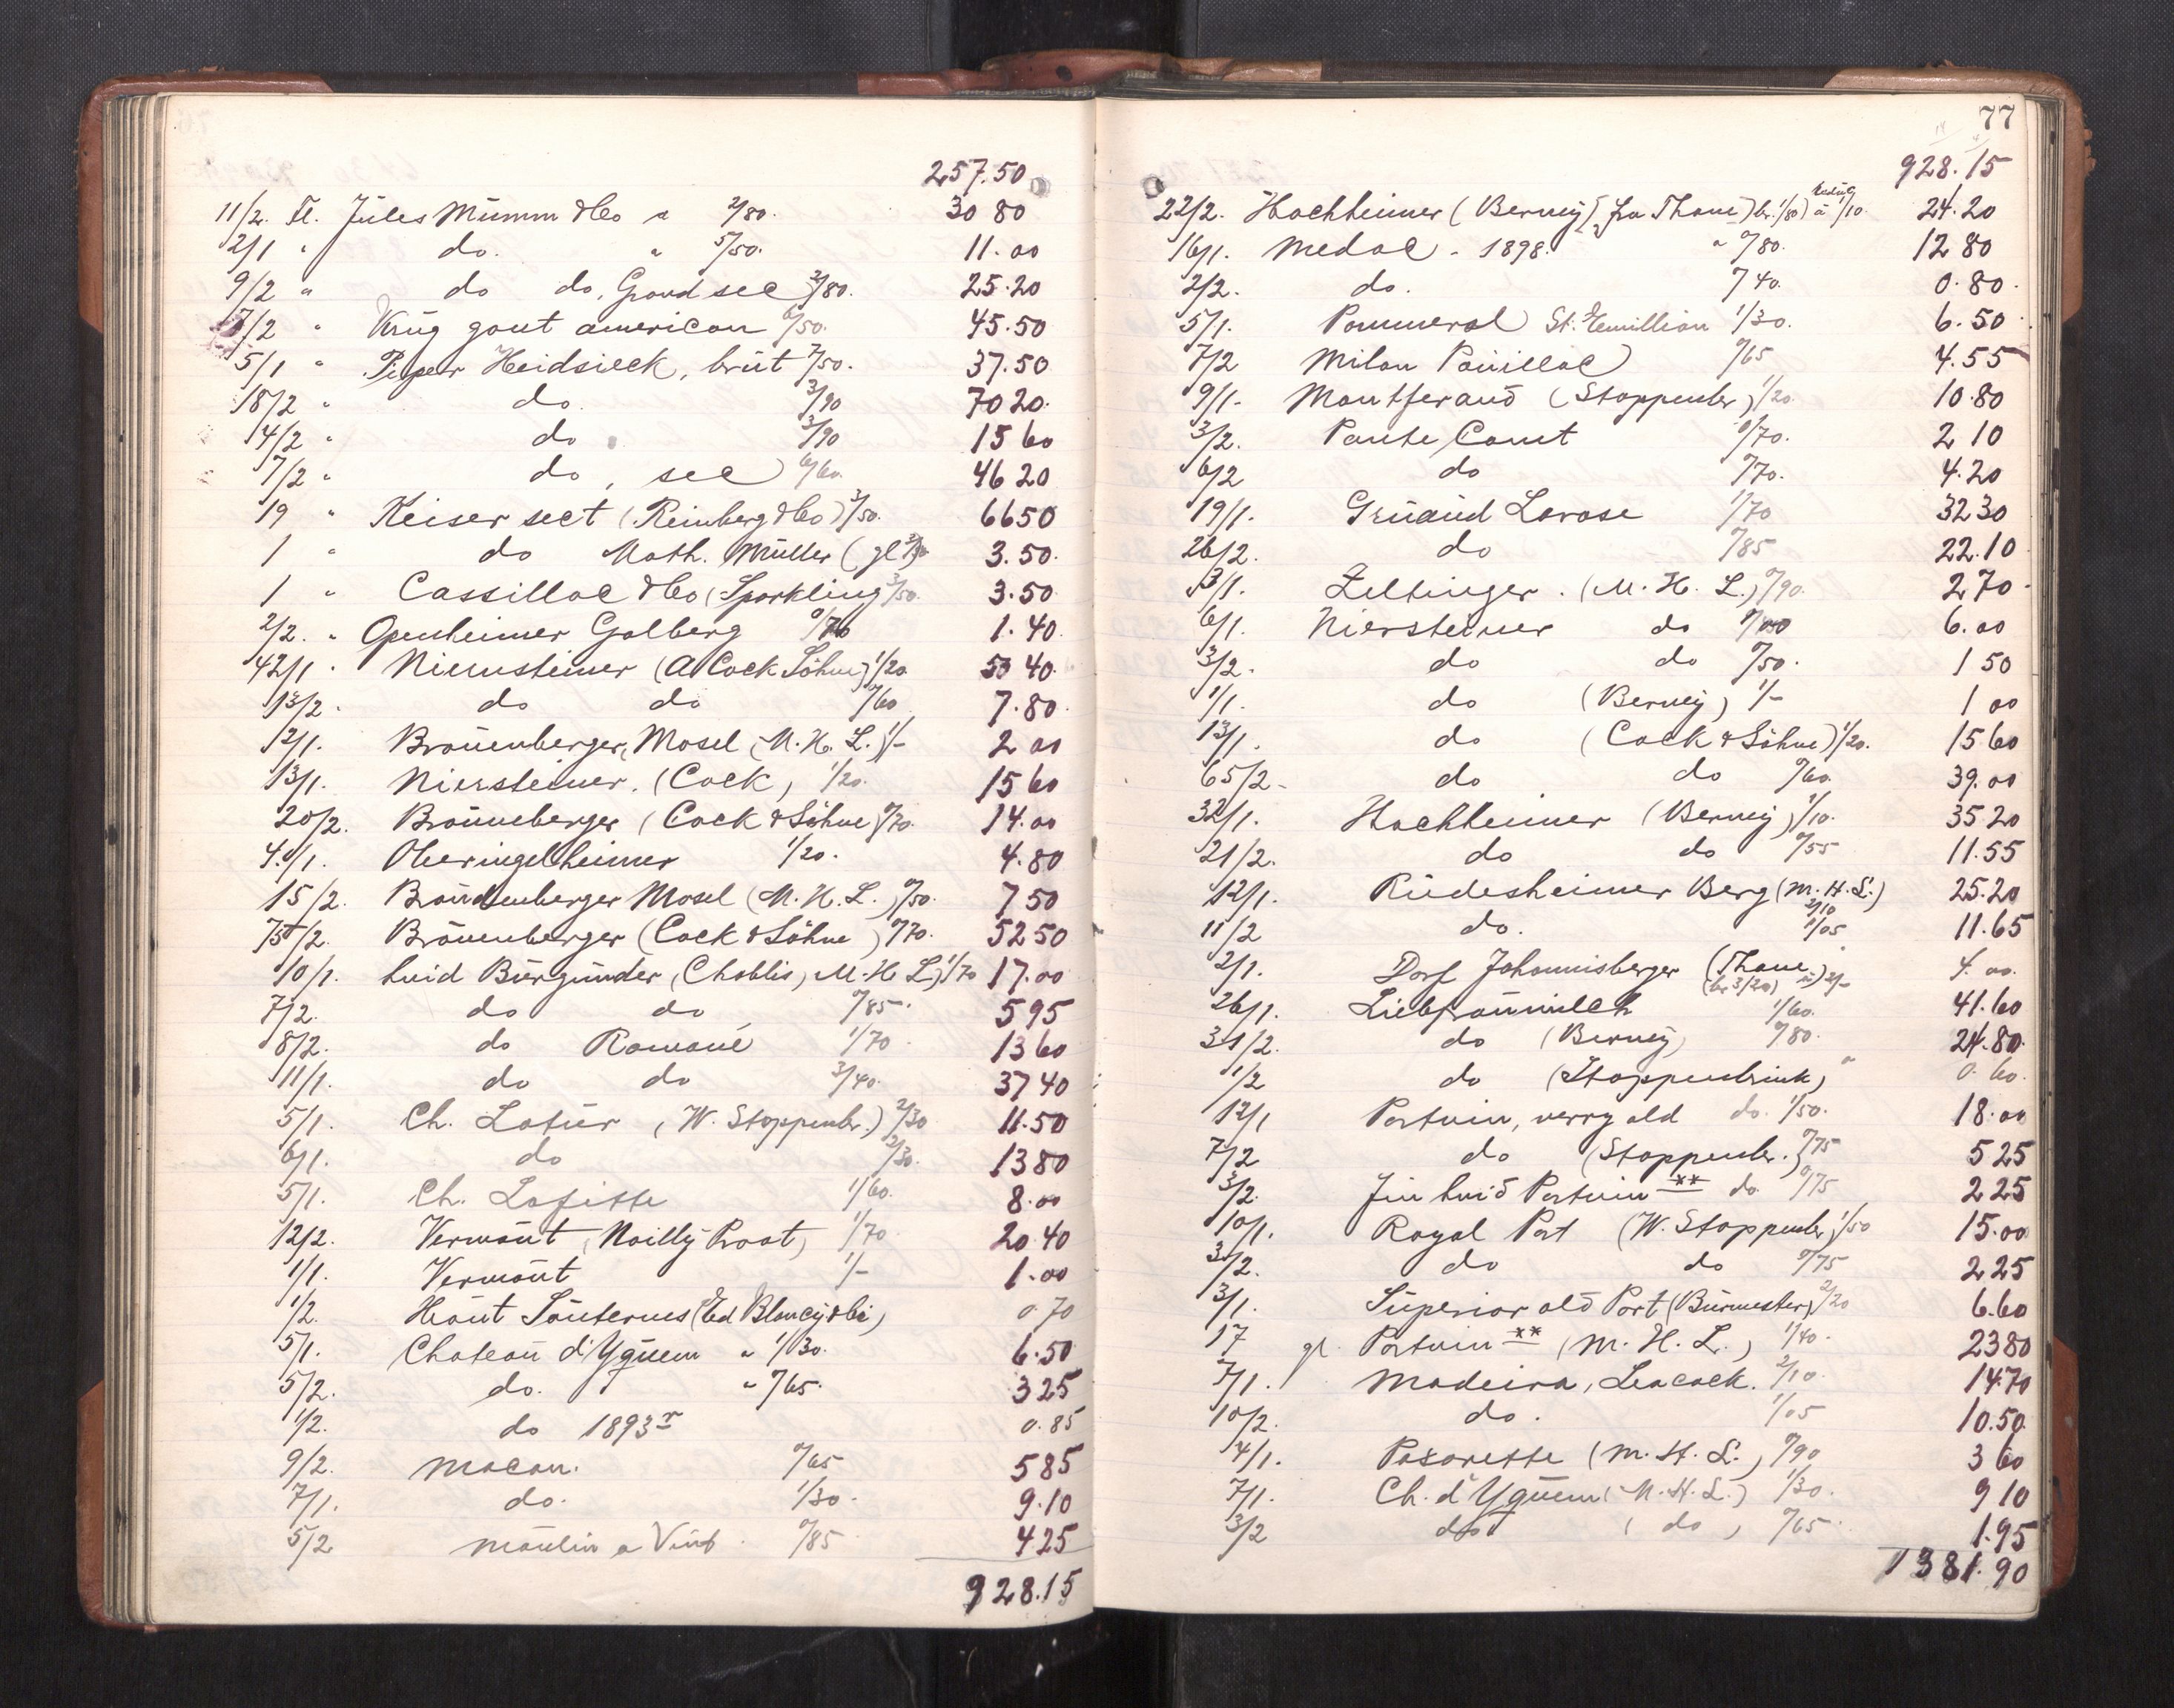 257.50
11/2. Fl. Jules Mumm & Co a 2/80. 30 80
2/1 " do. " 5/50. 11.00
9/2 " do do, Grand sec 2/80. 25.20
7/2 " Krug gout american 6/50. 45.50
5/1 " Piper Heidsieck, brut 7/50. 37.50
18/2 " do. 3/90 70 20.
4/2 " do 3/90 15 60
7/2 " do, sec 6/60. 46 20
19 " Keiser sect (Reinberg & Co) 3/50. 66 50
1 " do Math. Müller (gl 3/50 3.50.
1 " Cassillac & Co (Sparkling 3/50. 3.50
2/2. " Openheimer Golberg 0/70 1.40.
42/1 " Niernsteiner (A Cock Söhne) 1/20 50 40.
13/2 " do do 0/60 7.80.
2/1. Braunenberger, Mosel (M. H. L.) 1/- 2 00
13/1. Niersteiner. (Cock, 1/20. 15 60
20/2. Brauneberger (Cock & Söhne) 0/70. 14.00
4./1. Oberingelheimer 1/20. 4.80
15/2. Braunenberger Mosel (M. H. L.) 0/50. 7 50
75/2. Braunenberger (Cock & Söhne) 0/70. 52 50
10/1. hvid Burgunder, Chablis, M. H L.) 1/70 17.00
7/2. do do, 0/85. 5 95
8/2. do Romane 1/70. 13 60
11/1. do do 3/40. 37 40
5/1. Ch. Latur, (W. Stoppenbr.) 2/30 11.50
6/1. do 2/30. 13 80
5/1. Ch. Lafitte 1/60. 8.00
12/2. Vermaut (Noilly Praat) 1/70. 20.40
1/1. Vermaut 1/- 1.00
1/2. Haut Sauternes (Ed Blancy & Co) 0.70
5/1. Chateau d'Yquem " 1/30. 6.50
5/2. do. " 0/65. 3 25
1/2. do 1893r 0.85
9/2. Macon. 0/65 5 85
7/1. do. 1/30. 9.10
5/2 Maulin a Vint. 0/85 4 25
928.15
77
928.15
22/2. Hochheimer (Berney) fra Thane) br. 1/80) a 1/10. 24.20
16/1. Medoc. 1898. " 0/80. 12 80
2/2. do. 0/40. 0.80.
5/1. Pommerol St. Emillion 1/30. 6.50.
7/2 Milon Pauillac 0/65 4.55
9/1. Montferand (Stoppenbr) 1/20. 10.80
3/2. Ponte Canet 0/70. 2 10
6/2 do 0/70. 4.20
19/1. Gruaud Larose 1/70 32 30
26/2. do 0/85 22.10
3/1. Zeltinger. (M. H. L.) 0/90. 2 70
6/1. Niersteiner do 6.00
3/2. do do 0/50. 1 50
1/1. do (Berney) 1/- 1 00
13/1. do (Cock & Söhne) 1/20. 15 60
65/2. do do 0/60. 39.00
32/1. Hochheimer (Berney) 1/10. 35 20
21/2. do do 0/55 11.55
12/1. Rüdesheimer Berg (M. H. L.) 2/10 25.20
11/2 do. 1/05 11.65
2/1. Dorf Johannisberger (Thane (br 3/20) a) 2/- 4.00.
26/1. Liebfraumilch 1/60. 41.60
31/2. do (Berney) 0/80. 24.80.
1/2 do (Stoppenbrink) " 0.60.
12/1 Portvin, verry old do. 1/50. 18.00
7/2 do (Stoppenbr.) 0/75 5 25
3/2. Fin hvid Portvin ** do. 0/75 2 25
10/1. Royal Port (W. Stoppenbr) 1/50 15.00
3/2. do do 0/75 2 25
3/1. Superior old Port (Burmester) 2/20 6.60
17 gl. Portvin ** (M. H. L.) 1/40. 23 80
7/1. Madeira, Leacock. 2/10. 14.70
10/2. do. 1/05 10.50
4/1. Paxarette (M. H. L.) 0/90 3 60
7/1. Ch. d'Yquem (M. H. L.) 1/30. 9 10
3/2 do (do) 0/65. 1.95
1381.90